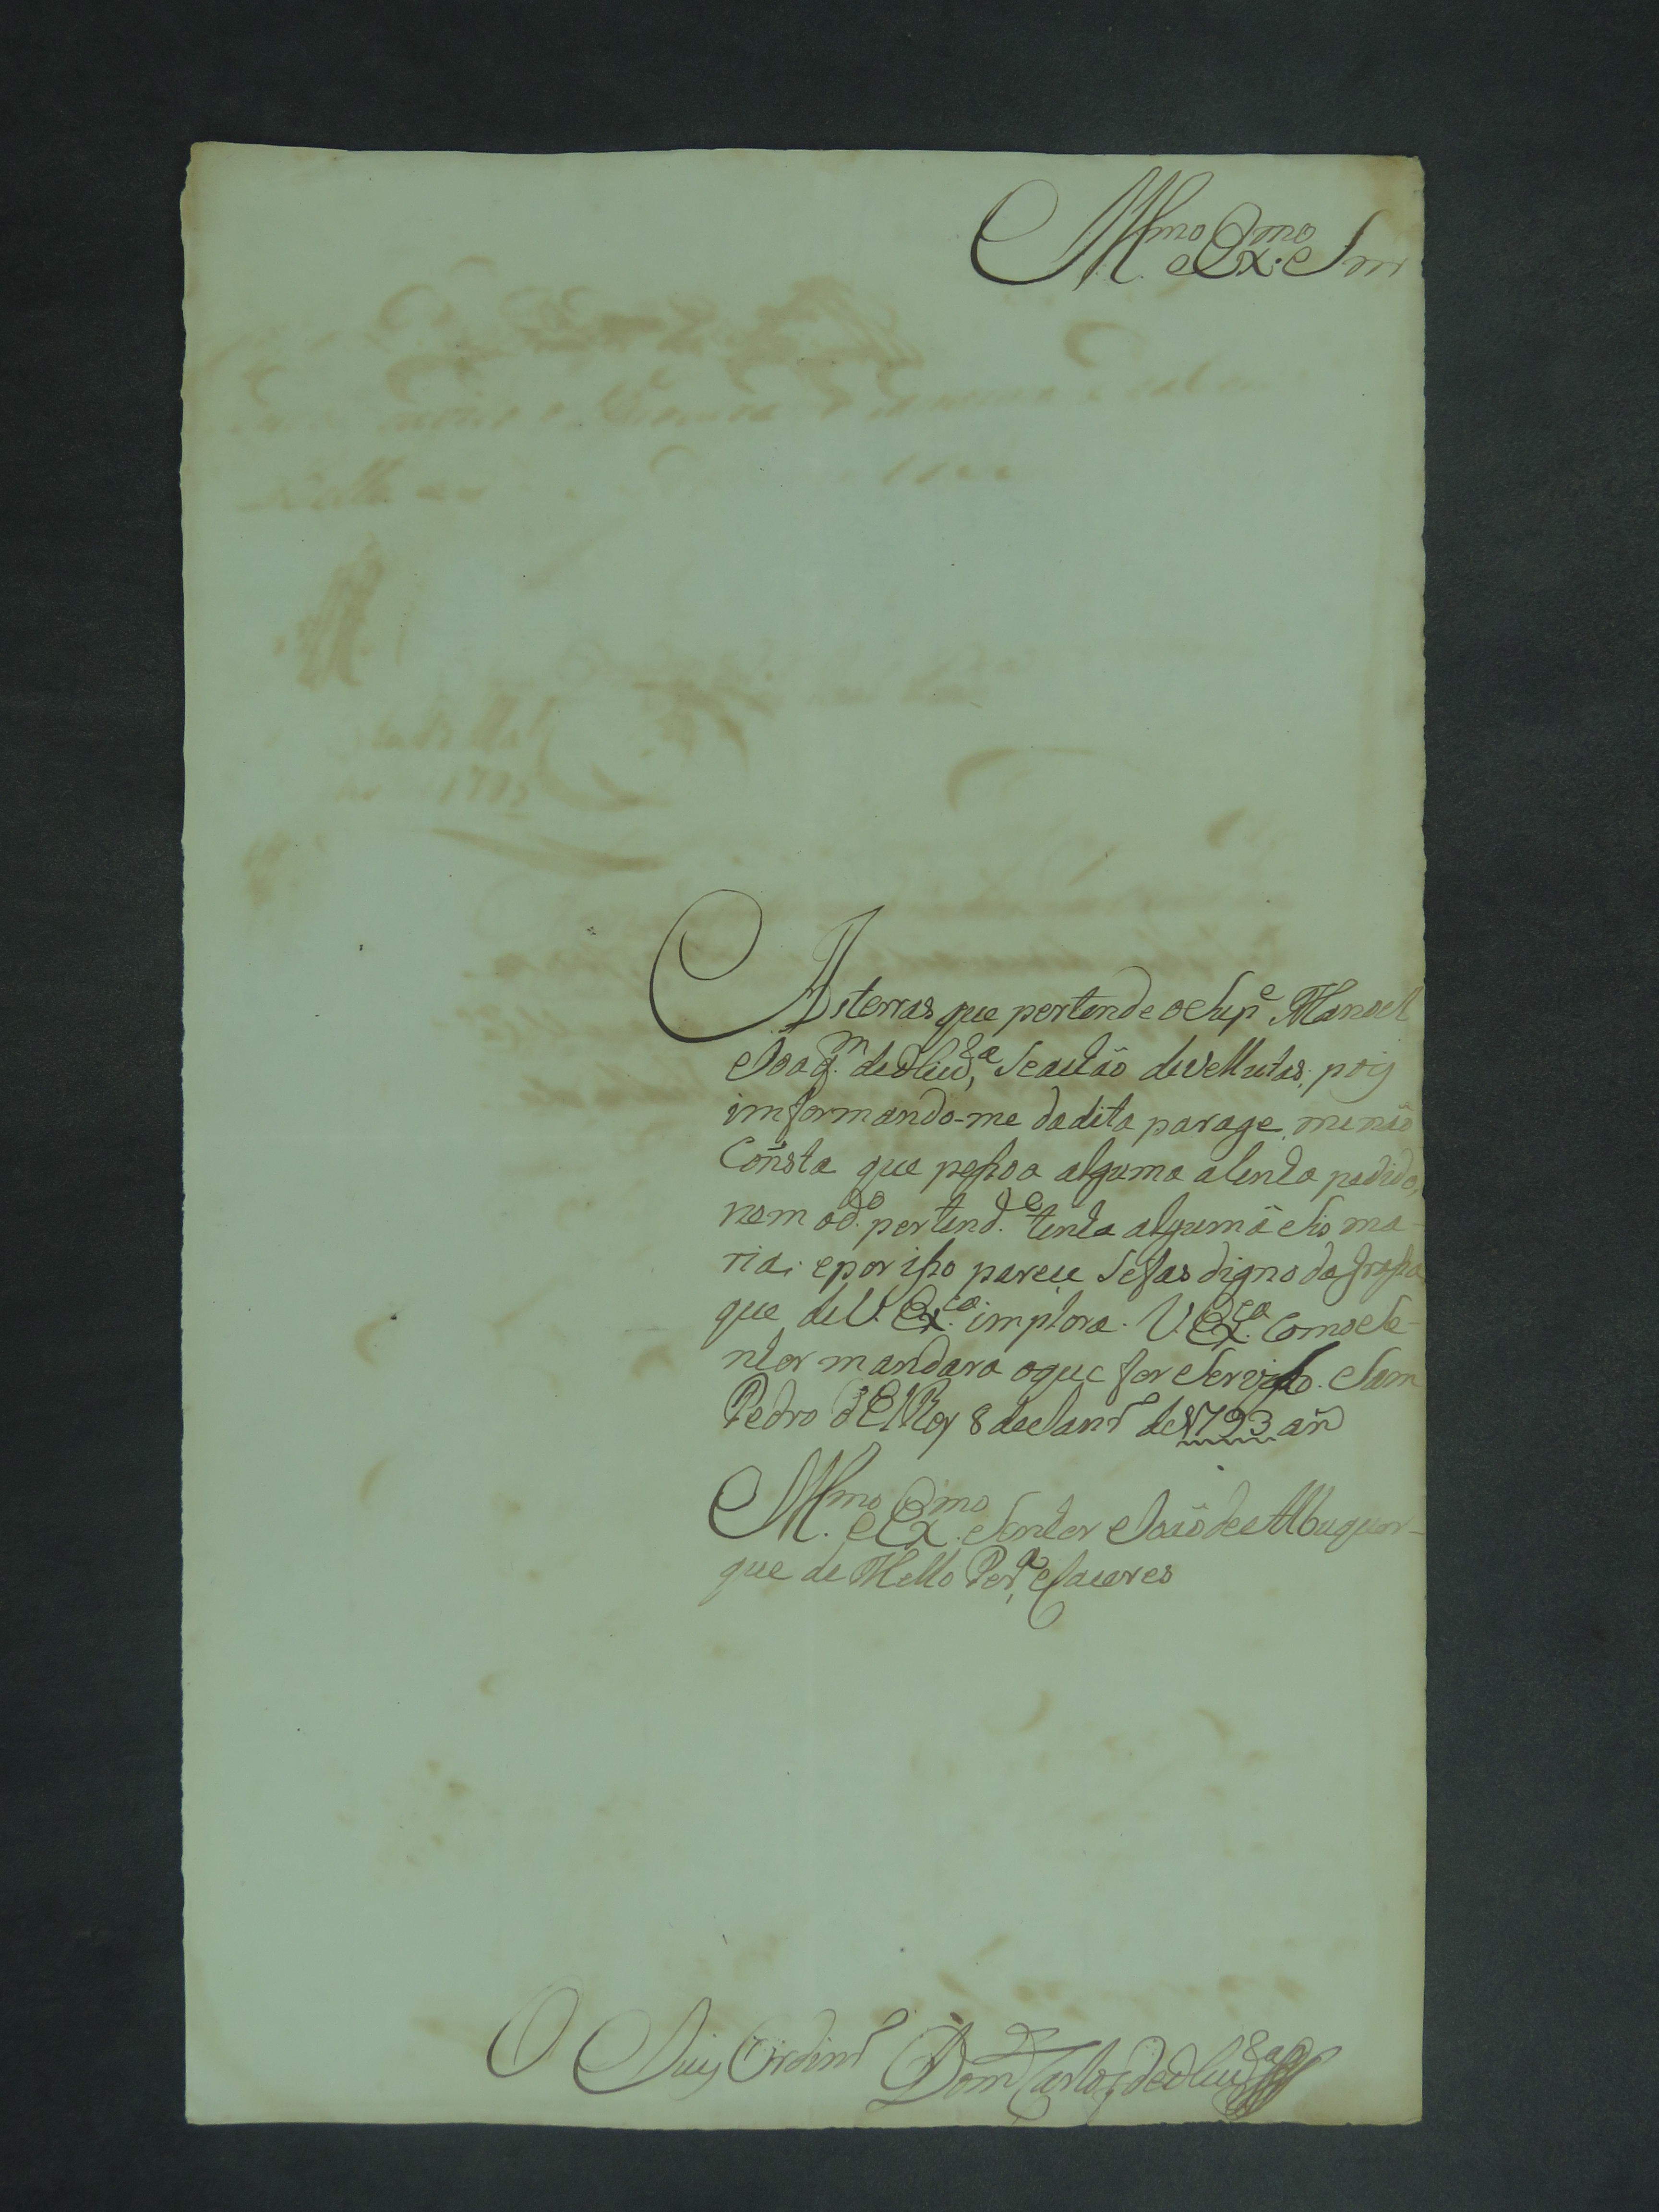 Ill.mo e Ex.mo Snr
As terras que pertende o Sup.e Manoel
Joaq.m de Oliv.ra, Se aclão devellutas; pois
imformando-me da dita parage, me não
Consta que pessoa alguma a tenha pedido,
nem o d.o pertend.e tenha algumã Sis ma-
ria; e por isso pareçe Se fas digno da grassa
que de V. Ex.ca implora. V. Ex.ca Como Se-
nhor mandara o que for Servido. Sam
Pedro d'ElRey 8 de Janr.o de 1793 añ
Ill.mo e Ex.mo Senhor João de Albuquer-
que de Mello Per.a e Caceres
O Juis Ordinr.o Dom.os Carlos de Oliv.ra